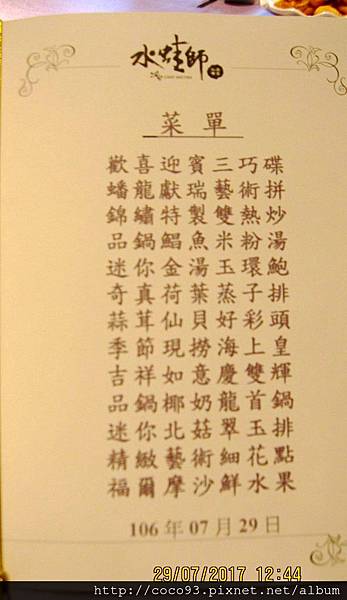 水蛙師
菜單
歡喜迎賓三巧碟
蟠龍獻瑞藝術拼
錦繡特製雙熱炒
品鍋鯧魚米粉湯
迷你金湯玉環鮑
奇真荷葉蒸子排
蒜茸仙貝好彩頭
季節現撈海上皇
吉祥如意慶雙輝
品鍋椰奶龍首鍋
迷你北菇翠玉排
精緻藝術細花點
福爾摩沙鮮水果
106年07月29日
29/07/2017 12:44
http://coco93.pixnet.net/album